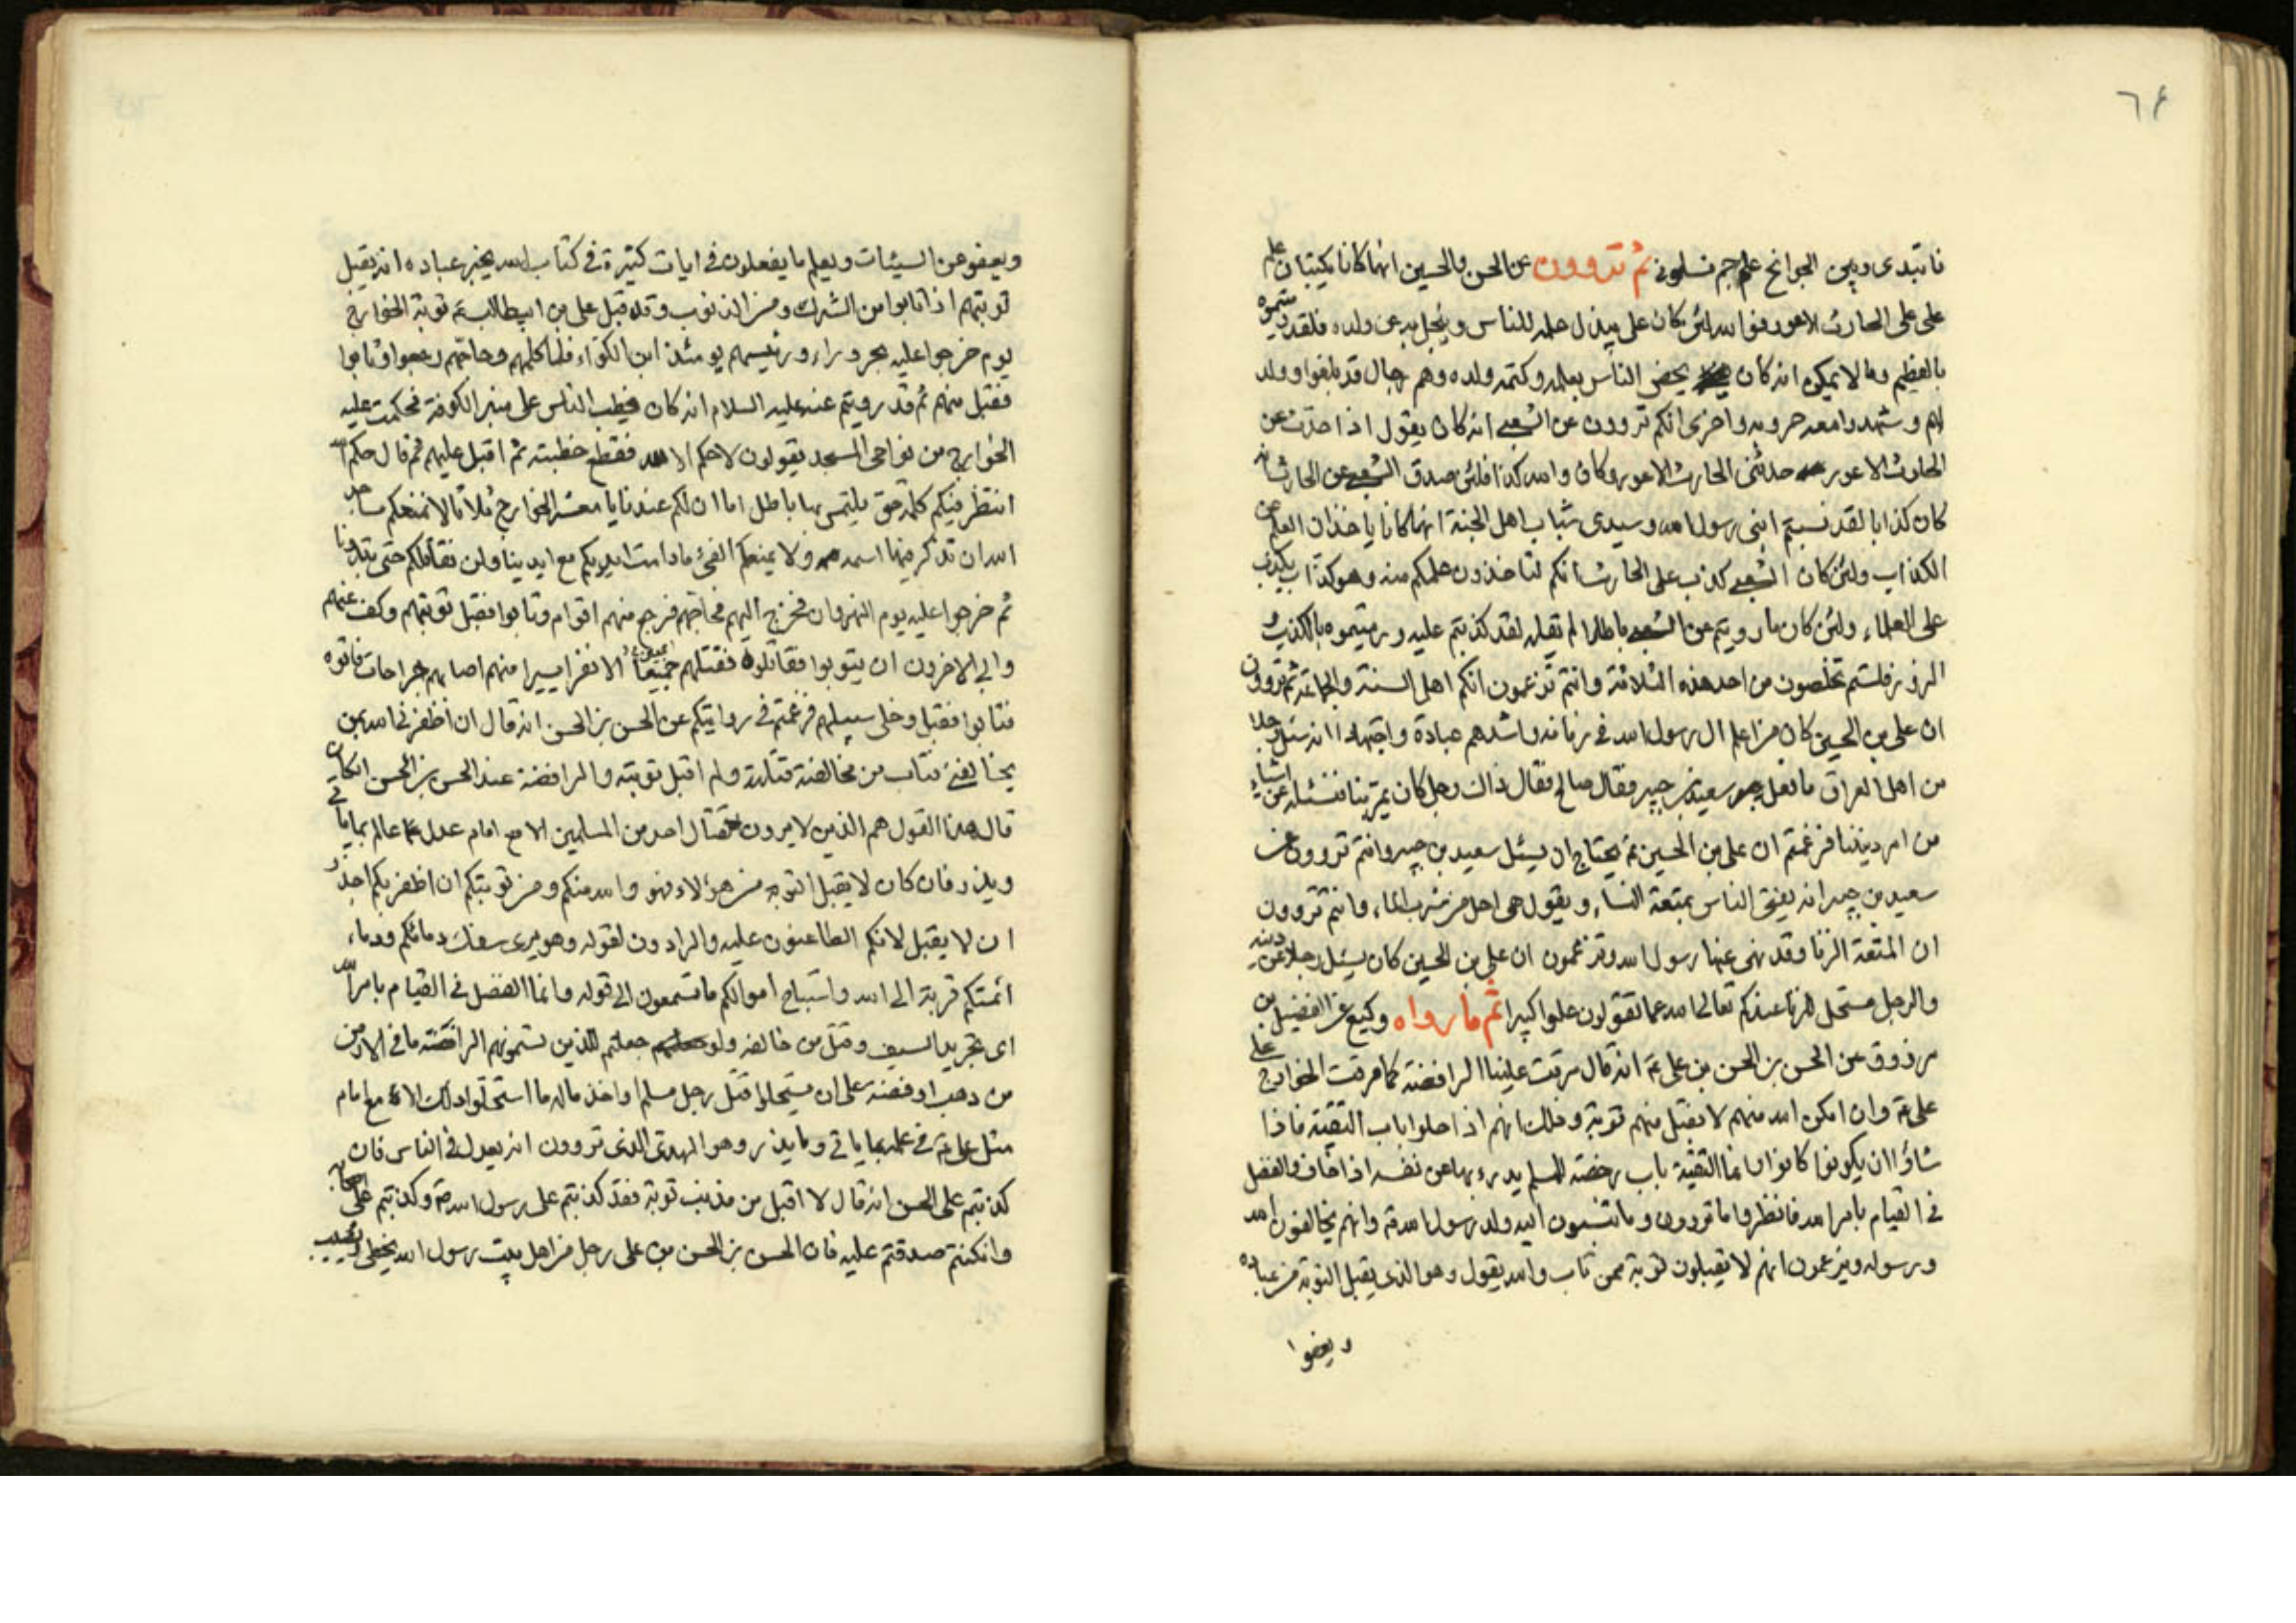 ٦٤
فابتدى وبين الجوانح علم جم فسلونى ثم تروون عن الحسن والحسين انهما كانا يكتبان علم
على على الحارث الاعور فوالله لئن كان على يبذل علمه للناس ويبخل به عن ولده فلقد رميتموه
بالعظيم وما لا يمكن انه كان يحض الناس بعلمه وكتمه ولده وهم رجال قد بلغوا وولد
لهم وشهدوا معه حروبه واخرى انكم تروون عن الشعبى انه كان يقول اذا حدث عن
الحارث الاعور حدثنى الحارث الاعور وكان والله كذابا فلئن صدق الشعبى عن الحارث انه
كان كذابا لقد نسبتم ابنى رسول الله وسيدى شباب اهل الجنة انهما كانا ياخذان العلم عن
الكذاب ولئن كان الشعبى كذب على الحارث انكم لتاخذون علمكم منه وهو كذاب يكذب
على العلماء ولئن كان ما رويتم عن الشعبى باطلا لم يقله لقد كذبتم عليه ورميتموه بالكذب و
الزور فلستم تخلصون من احد هذه الثلاثة وانتم تزعمون انكم اهل السنة والجماعة ثم تروون
ان على بن الحسين كان من اعلم ال رسول الله فى زمانه واشدهم عبادة واجتهادا انه سئل رجلا
من اهل العراق ما فعل سعيد بن جبير فقال صالح فقال ذاك رجل كان يمر بنا فنسئله عن اشياء
من امر ديننا فزعمتم ان على بن الحسين ع يحتاج ان يسئل سعيد بن جبير وانتم تروون عن
سعيد بن جبير انه يفتى الناس بمتعة النساء ويقول هى احل من شرب الماء وانتم تروون
ان المتعة الزنا وقد نهى عنها رسول الله وتزعمون ان على بن الحسين كان يسئل رجلا عن دينه
والرجل مستحل للزنا عندكم تعالى الله عما تقولون علوا كبيرا ثم ما رواه وكيع عن الفضيل بن
مرزوق عن الحسن بن الحسن بن على ع انه قال مرقت علينا الرافضة كما مرقت الخوارج على
على ع وان امكن الله منهم لا يقبل منهم توبة وذلك انهم اذا حلوا باب التقية فاذا
شاؤا ان يكونوا كانوا انما التقية باب رخصة للمسلم يدرء بها عن نفسه اذا خاف والفضل
فى القيام بامر الله فانظروا ما تروون وما تنسبون اليه ولد رسول الله ص وانهم يخالفون الله
ورسوله ويزعمون انهم لا يقبلون توبة ممن تاب والله يقول وهو الذى يقبل التوبة عن عباده
ويعفوا
ويعفو عن السيئات ويعلم ما يفعلون فى ايات كثيرة فى كتاب الله يخبر عباده انه يقبل
توبتهم اذا تابوا من الشرك ومن الذنوب وقد قبل على بن ابيطالب ع توبة الخوارج
يوم خرجوا عليه بحروراء ورئيسهم يومئذ ابن الكواء فلما كلمهم وحاجهم رجعوا وتابوا
فقبل منهم ثم قد رويتم عنه عليه السلام انه كان يخطب الناس على منبر الكوفة فحكمت عليه
الخوارج من نواحى المسجد يقولون لا حكم الا لله فقطع خطبته ثم اقبل عليهم ثم قال حكم الله
انتظر فيكم كلمة حق يلتمس بها باطل اما ان لكم عندنا يا معشر الخوارج ثلاثا لا نمنعكم مساجد
الله ان تذكر فيها اسمه ولا يمنعكم الفئ ما دامت ايديكم مع ايدينا ولن نقاتلكم حتى تبدؤنا
ثم خرجوا عليه يوم النهروان فخرج اليهم فحاجهم فرجع منهم اقوام وتابوا فقبل توبتهم وكف عنهم
وابى الاخرون ان يتوبوا فقاتلوه فقتلهم جميعا الا نفرا يسيرا منهم اصابهم جراحات فاتوه
فتابوا فقبل وخلى سبيلهم فزعمتم فى روايتكم عن الحسن بن الحسن انه قال ان اظفرنى الله بمن
يخالفنى فتاب من مخالفته قتلته ولم اقبل توبته والرافضة عند الحسن بن الحسن ان كان
قال هذا القول هم الذين لا يرون قتال احد من المسلمين الا مع امام عدل عالم بما ياتى
ويذر فان كان لا يقبل التوبه من هؤلاء فهو والله منكم ومن توبتكم ان اظفر بكم اجدر
ان لا يقبل لانكم الطاعنون عليه والرادون لقوله وهو يرى سفك دمائكم ودماء
ائمتكم قربة الى الله واستباح اموالكم ما تسمعون الى قوله وانما الفضل فى القيام بامر الله
اى بتجريد السيف وقتل من خالفه ولو جعلتم للذين تسمونهم الرافضة ما فى الارض
من ذهب او فضة على ان يستحلوا قتل رجل مسلم او اخذ ماله ما استحلوا ذلك الا مع امام
مثل على ع فى علمه بما ياتى وما يذر وهو المهدى الذى تروون انه يعدل فى الناس فان
كذبتم على الحسن انه قال لا اقبل من مذنب توبة فقد كذبتم على رسول الله ص وكذبتم على اصحابه
وان كنتم صدقتم عليه فان الحسن بن الحسن بن على رجل من اهل بيت رسول الله يخطى ويصيب